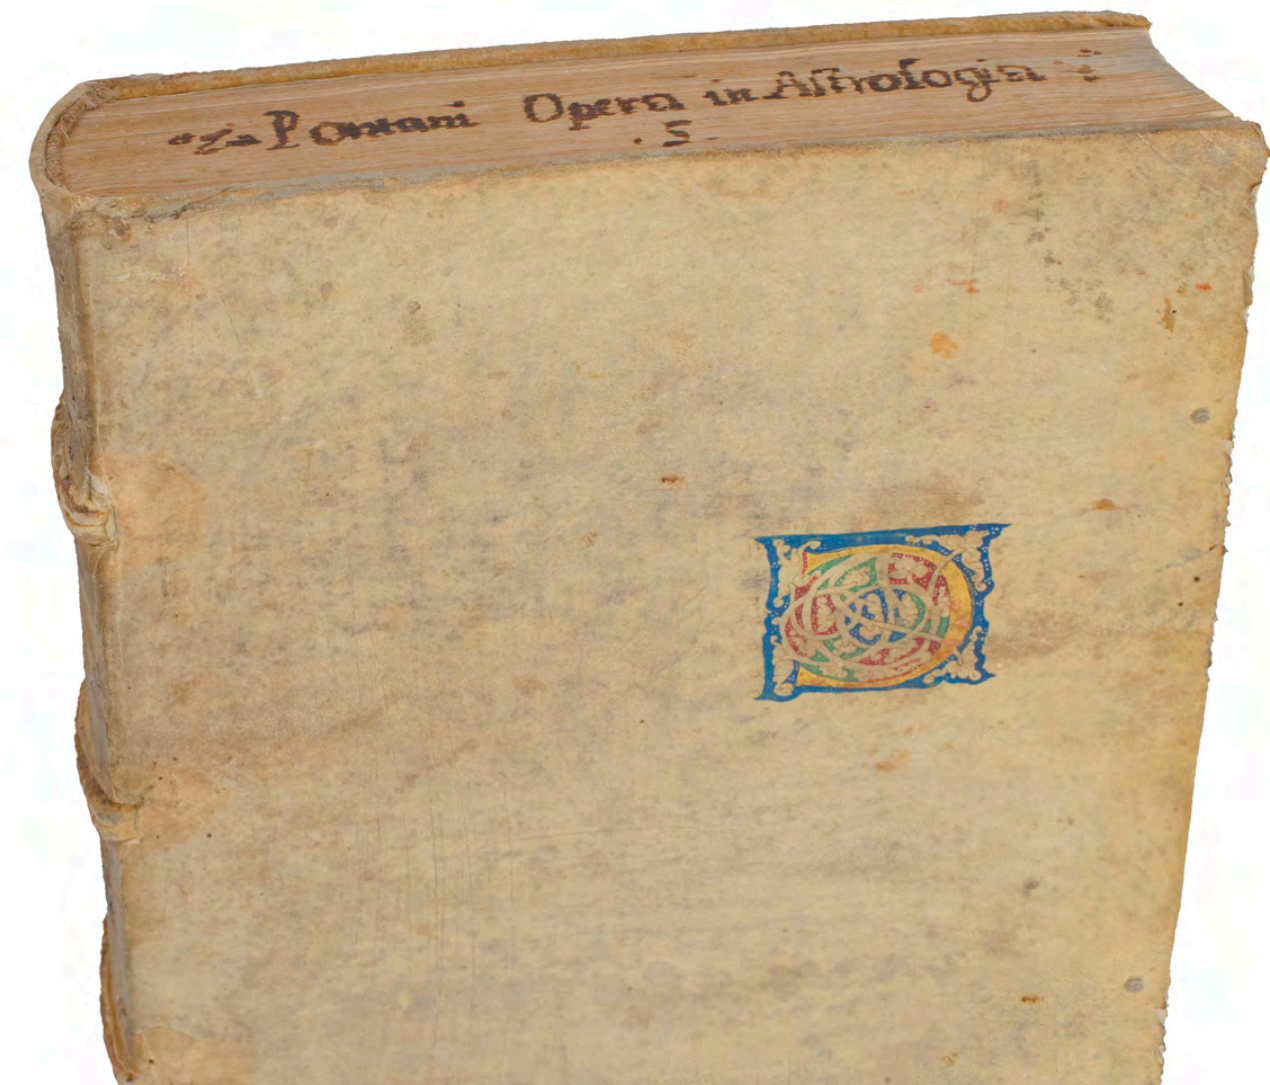 Pontani Opera in Astrologia
.5.